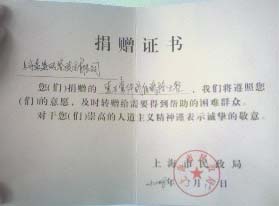 捐赠证书
上海
有限公司
您(们)捐赠的
,我们将遵照您
(们)的意愿,及时转赠给需要得到帮助的困难群众。
对于您(们)崇高的人道主义精神谨表示诚挚的敬意。
上海市民政局
年 月 日